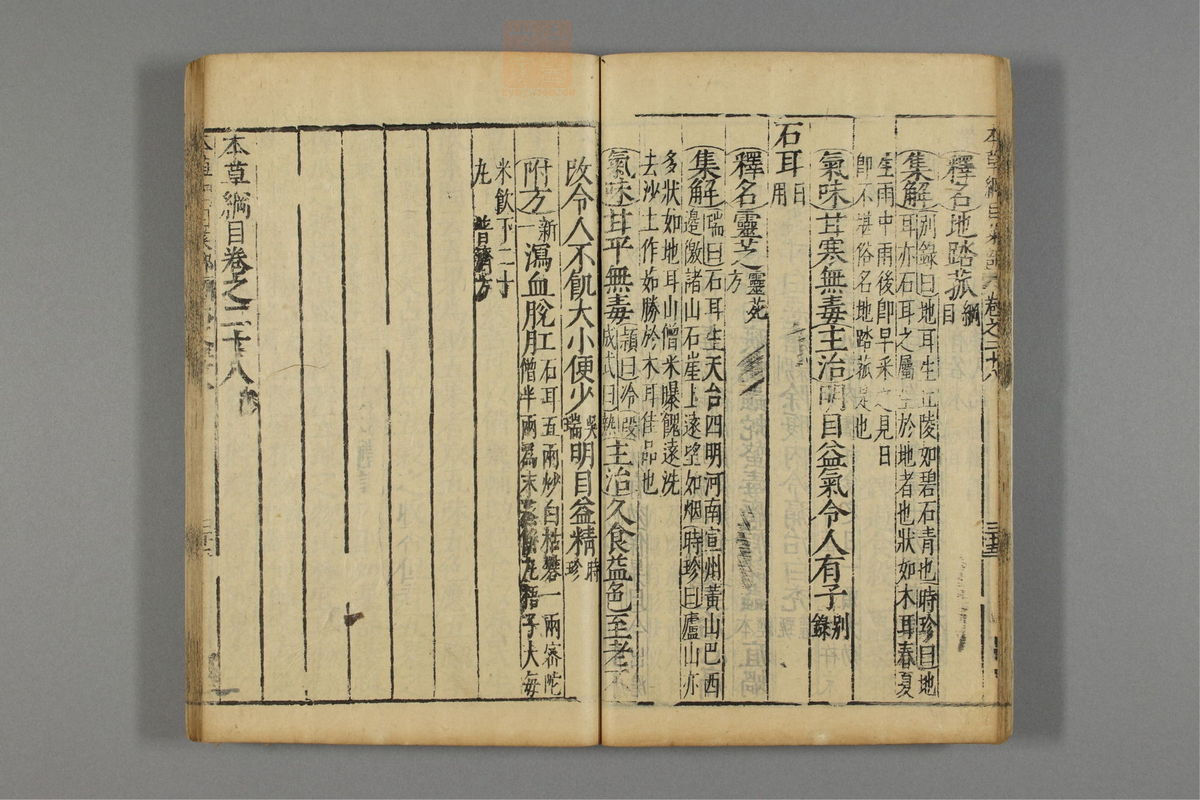 釋名地踏菰綱目
集解別錄曰地耳生丘陵如碧石青也時珍曰地
耳亦石耳之屬生於地者也狀如木耳春夏
生雨中雨後即早采之見日
即不堪俗名地踏菰是也
氣味甘寒無毒主治明目益氣令人有子別錄
石耳日用
釋名靈芝靈苑方
集解瑞曰石耳生天台四明河南宣州黃山巴西
邊徼諸山石崖上遠望如烟時珍曰廬山亦
多狀如地耳山僧采曝餽遠洗
去沙土作茹勝於木耳佳品也
氣味甘平無毒頴曰冷段成式曰熱主治久食益色至老不
改令人不飢大小便少吳瑞明目益精時珍
附方新一瀉血脫肛石耳五兩炒白枯礬一兩密陀
僧半兩爲末蒸餅丸梧子大每
米飲下二十
丸普濟方
本草綱目卷之二十八終